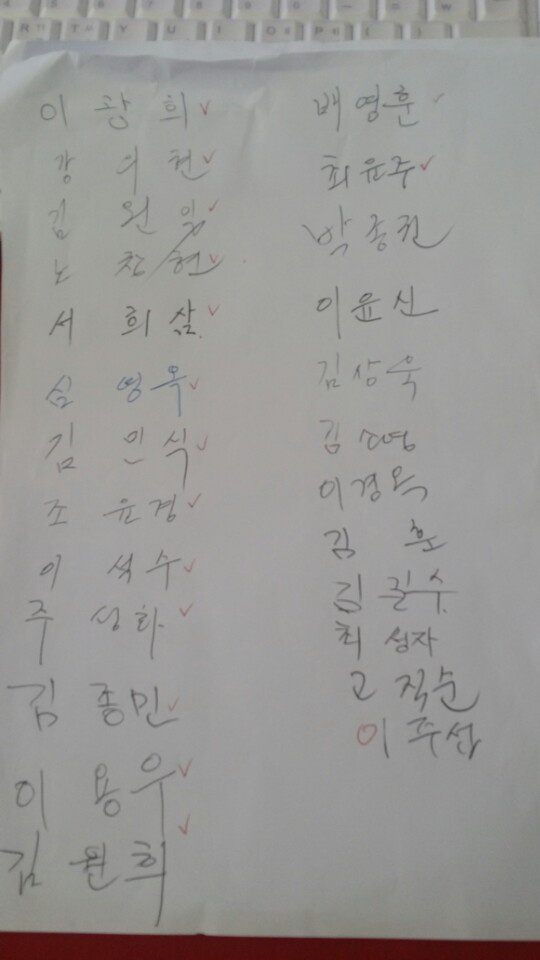 이 광 희
강 의 현
김 원 일
노 찬 현
서 희 삼
심 영 옥
김 민 식
조 윤 경
이 석 수
주 성 화
김 종 민
이 용 우
김 원 희
배 영 훈
최 윤 주
박 종 권
이 윤 신
김 상 욱
김 소영
이 경 옥
김 훈
김 길 수
최 성자
고 직 순
이 주 섭